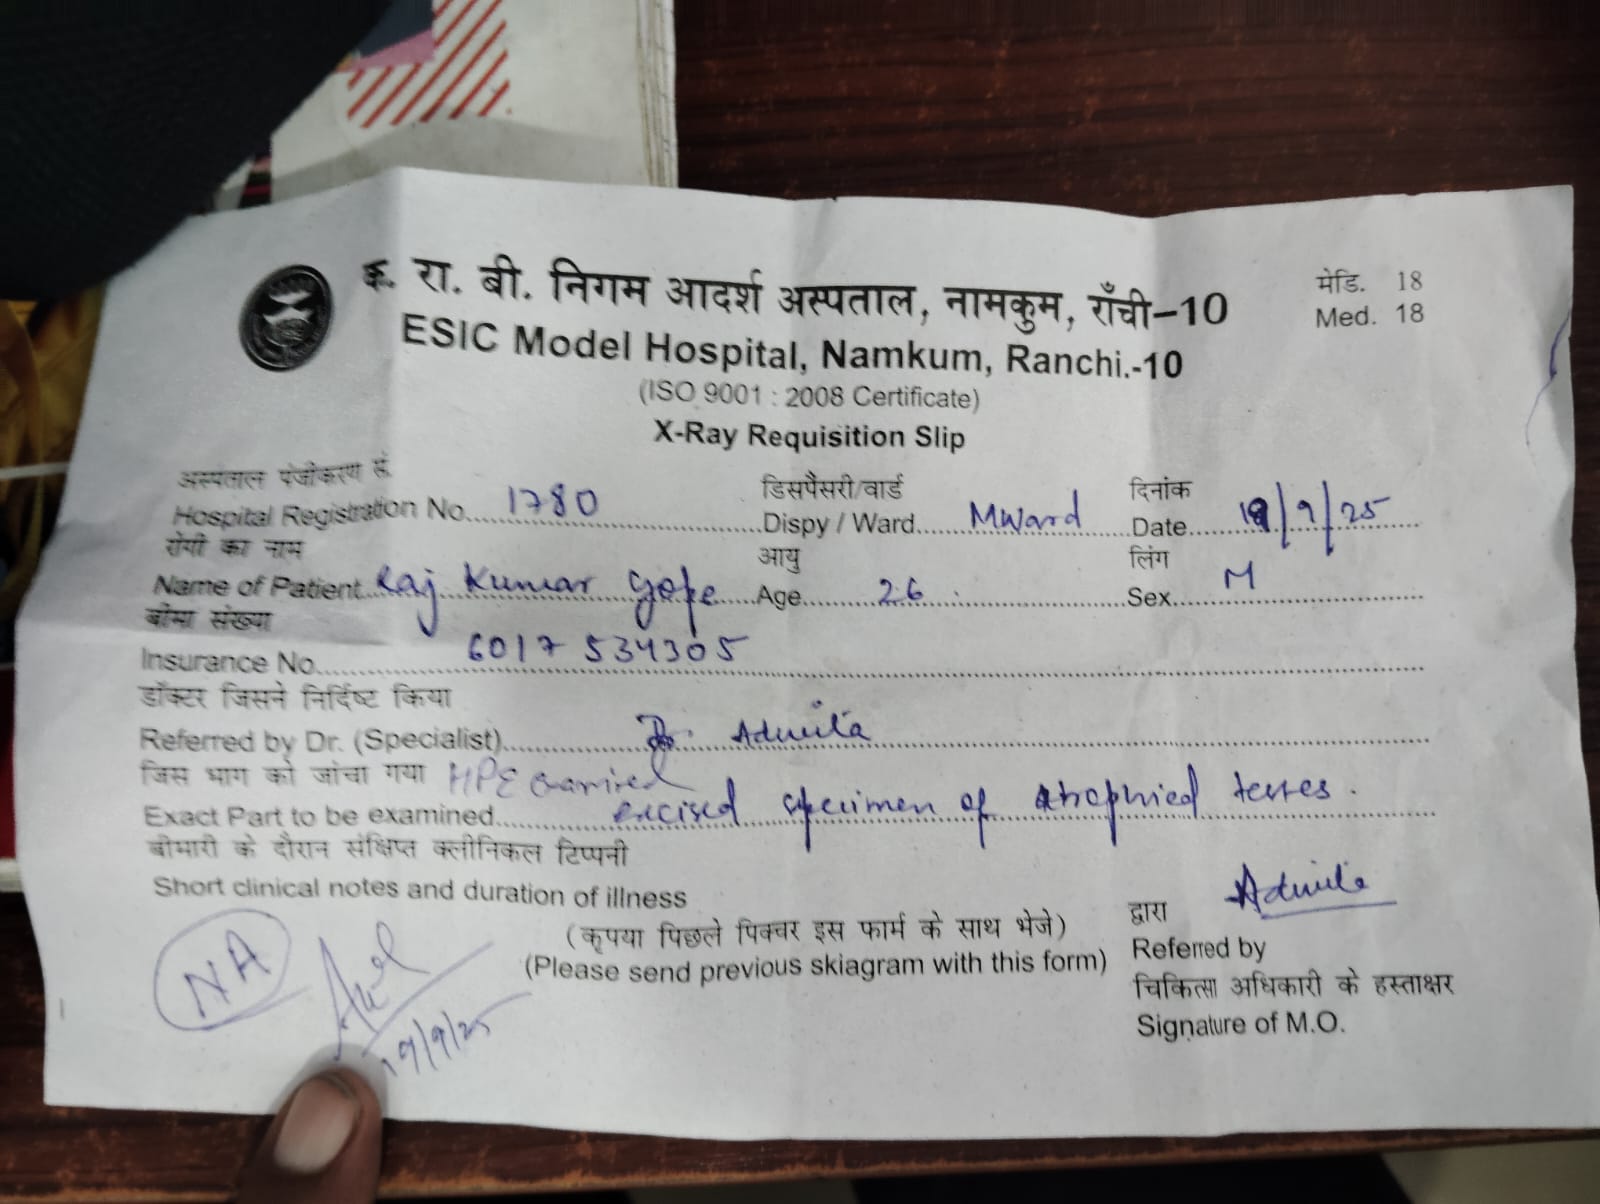 क. रा. बी. निगम आदर्श अस्पताल, नामकुम, राँची–10
मेडि. 18
ESIC Model Hospital, Namkum, Ranchi.-10
Med. 18
(ISO 9001 : 2008 Certificate)
X-Ray Requisition Slip
अस्पताल पंजीकरण सं. डिसपैसरी/वार्ड दिनांक
Hospital Registration No. 1780 Dispy / Ward MWard Date 19/9/25
रोगी का नाम आयु लिंग
Name of Patient Raj Kumar Gope Age 26 Sex M
बीमा संख्या
Insurance No. 6017 534305
डॉक्टर जिसने निर्दिष्ट किया
Referred by Dr. (Specialist) Dr.
जिस भाग को जांचा गया HPE
Exact Part to be examined excised specimen of atrophied testes.
बीमारी के दौरान संक्षिप्त क्लीनिकल टिप्पनी
Short clinical notes and duration of illness
NA
19/9/25
(कृपया पिछले पिक्चर इस फार्म के साथ भेजे)
(Please send previous skiagram with this form)
द्वारा
Referred by
चिकित्सा अधिकारी के हस्ताक्षर
Signature of M.O.